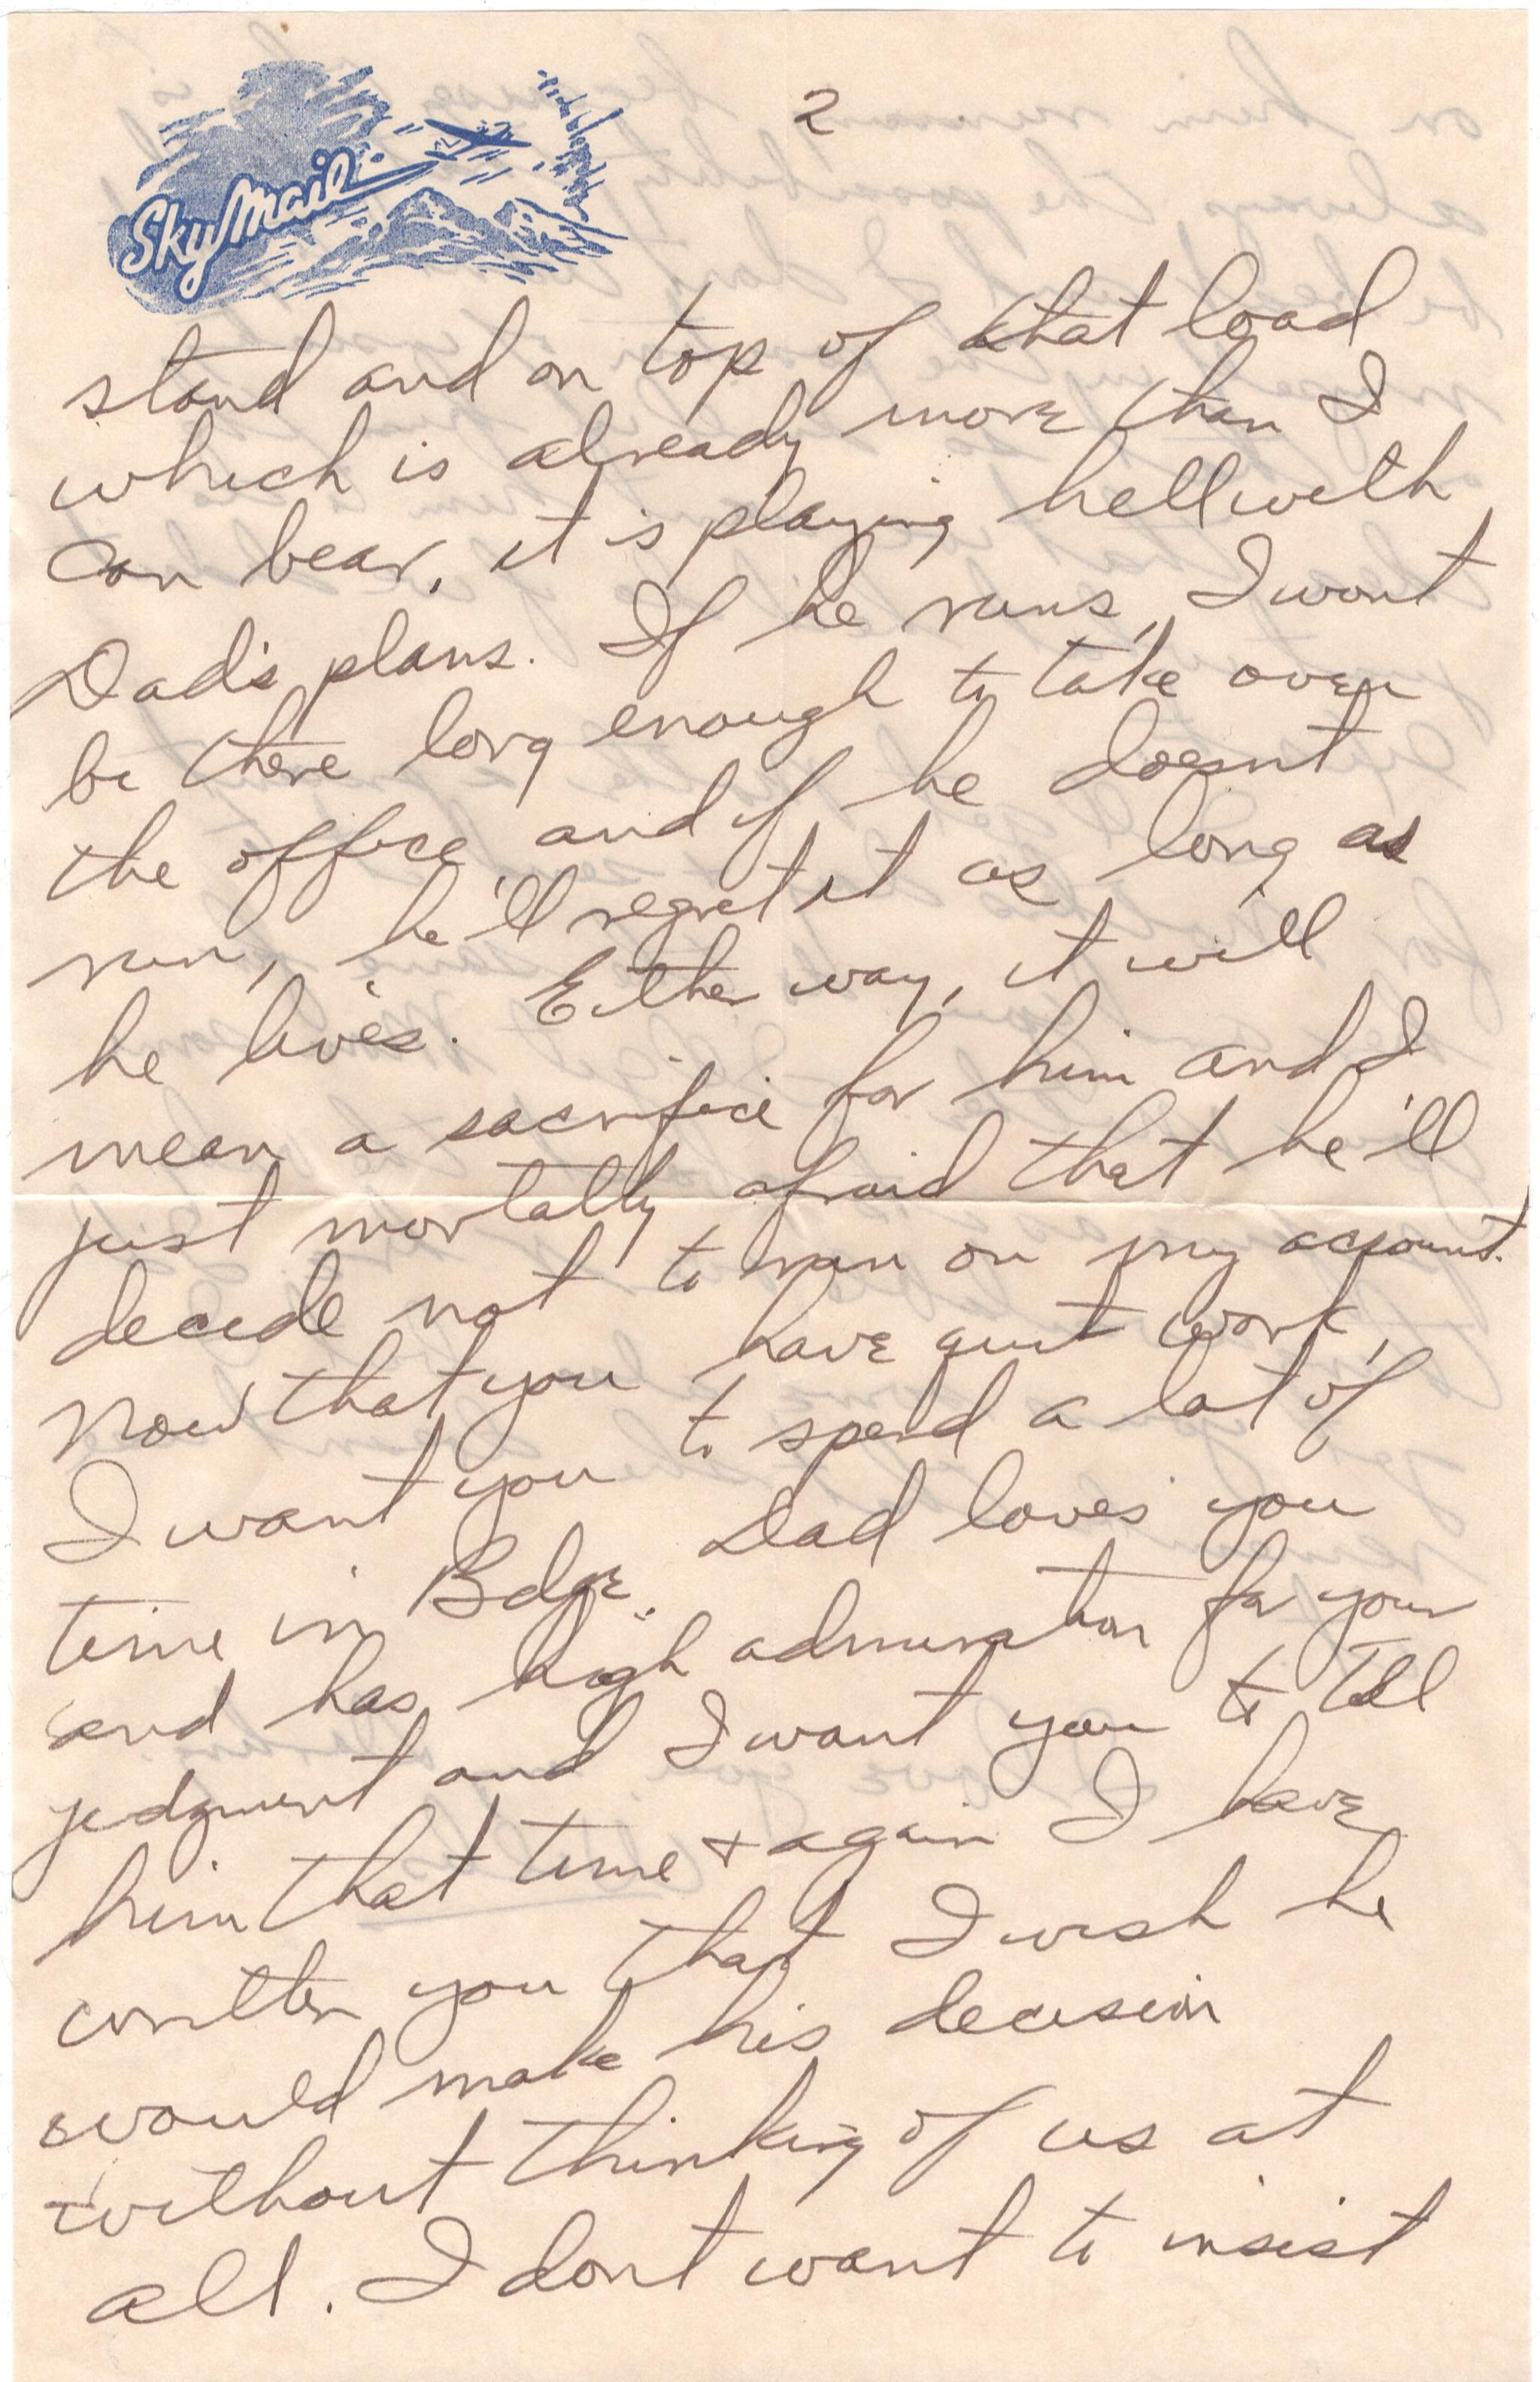 2
SkyMail
stand and on top of that load
which is already more than I
can bear, it is playing hell with
Dad's plans. If he runs, I wont
be there long enough to take over
the office, and if he doesnt
run, he'll regret it as long as
he lives. Either way, it will
mean a sacrifice for him and I
just mortally afraid that he'll
decide not to run on my account.
Now that you have quit work,
I want you to spend a lot of
time in Bdge. Dad loves you
and has high admiration for your
judgment and I want you to tell
him that time + again I have
written you that I wish he
would make his decision
without thinking of us at
all. I dont want to insist